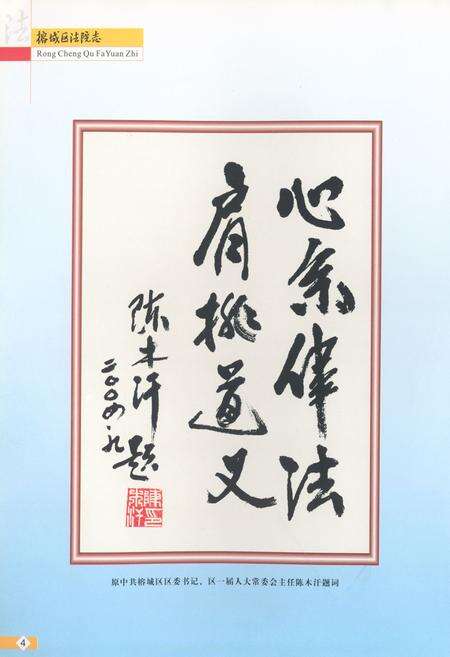 法
榕城区法院志
Rong Cheng Qu FaYuan Zhi
心系律法
肩挑道义
陈木汗题
二〇〇四.九
原中共榕城区区委书记、区一届人大常委会主任陈木汗题词
4